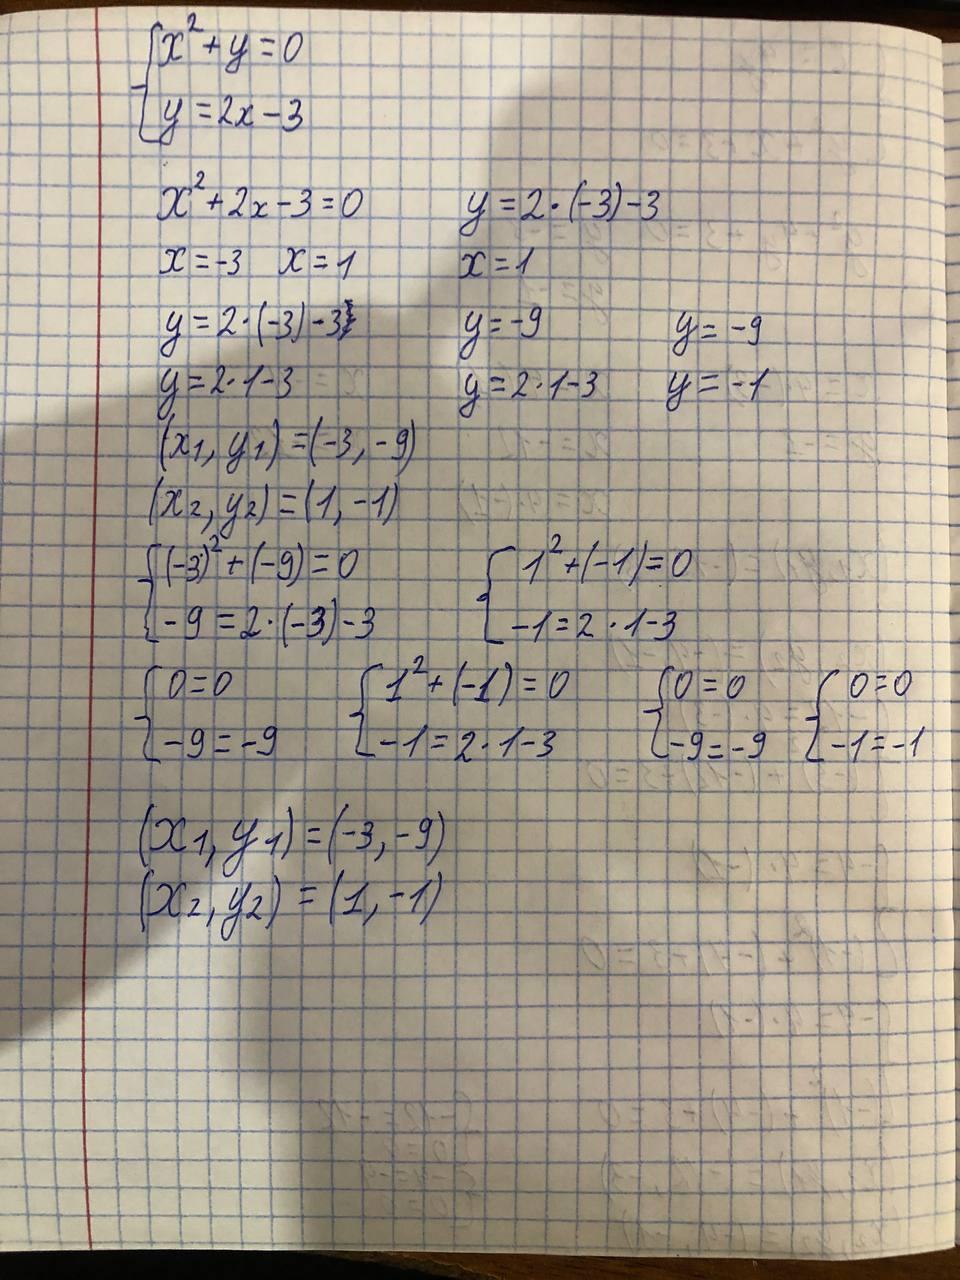 x² + y = 0
y = 2x - 3
x² + 2x - 3 = 0 y = 2 · (-3) - 3
x = -3 x = 1 x = 1
y = 2 · (-3) - 3 y = -9 y = -9
y = 2 · 1 - 3 y = 2 · 1 - 3 y = -1
(x₁, y₁) = (-3, -9)
(x₂, y₂) = (1, -1)
(-3)² + (-9) = 0 1² + (-1) = 0
-9 = 2 · (-3) - 3 -1 = 2 · 1 - 3
0 = 0 1² + (-1) = 0 0 = 0 0 = 0
-9 = -9 -1 = 2 · 1 - 3 -9 = -9 -1 = -1
(x₁, y₁) = (-3, -9)
(x₂, y₂) = (1, -1)